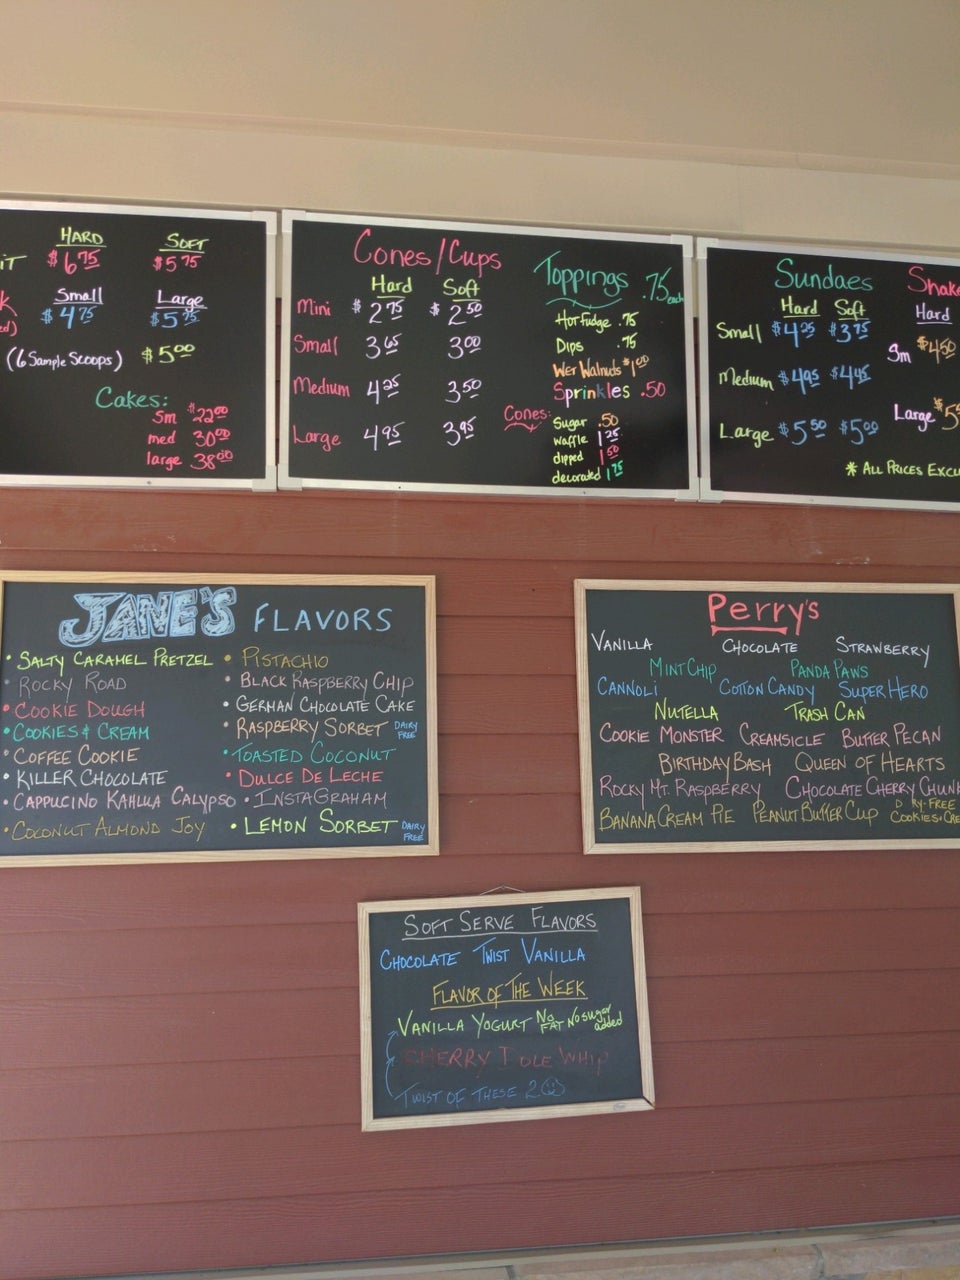 HARD SOFT
IT $6.75 $5.75
Small Large
K $4.75 $5.75
ed)
(6 Sample Scoops) $5.00
Cakes:
Sm $22.00
med 30.00
large 38.00
Cones/Cups
Hard Soft
Mini $2.75 $2.50
Small 3.65 3.00
Medium 4.25 3.50
Large 4.95 3.95
Toppings .75 each
Hot Fudge .75
Dips .75
Wet Walnuts $1.00
Sprinkles .50
Cones:
Sugar .50
waffle 1.25
dipped 1.50
decorated 1.75
Sundaes
Hard Soft
Small $4.25 $3.75
Medium $4.95 $4.45
Large $5.50 $5.00
Shake
Hard
Sm $4.50
Large $5
* ALL PRICES EXCLU
JANE'S FLAVORS
• SALTY CARAMEL PRETZEL
• ROCKY ROAD
• COOKIE DOUGH
• COOKIES & CREAM
• COFFEE COOKIE
• KILLER CHOCOLATE
• CAPPUCINO KAHLUA CALYPSO
• COCONUT ALMOND JOY
• PISTACHIO
• BLACK RASPBERRY CHIP
• GERMAN CHOCOLATE CAKE
• RASPBERRY SORBET DAIRY FREE
• TOASTED COCONUT
• DULCE DE LECHE
• INSTAGRAHAM
• LEMON SORBET DAIRY FREE
Perry's
VANILLA CHOCOLATE STRAWBERRY
MINT CHIP PANDA PAWS
CANNOLI COTTON CANDY SUPER HERO
NUTELLA TRASH CAN
COOKIE MONSTER CREAMSICLE BUTTER PECAN
BIRTHDAY BASH QUEEN OF HEARTS
ROCKY MT. RASPBERRY CHOCOLATE CHERRY CHUNK
BANANA CREAM PIE PEANUT BUTTER CUP D RY-FREE COOKIES & CRE
SOFT SERVE FLAVORS
CHOCOLATE TWIST VANILLA
FLAVOR OF THE WEEK
VANILLA YOGURT NO FAT No sugar added
CHERRY DOLE WHIP
TWIST OF THESE 2